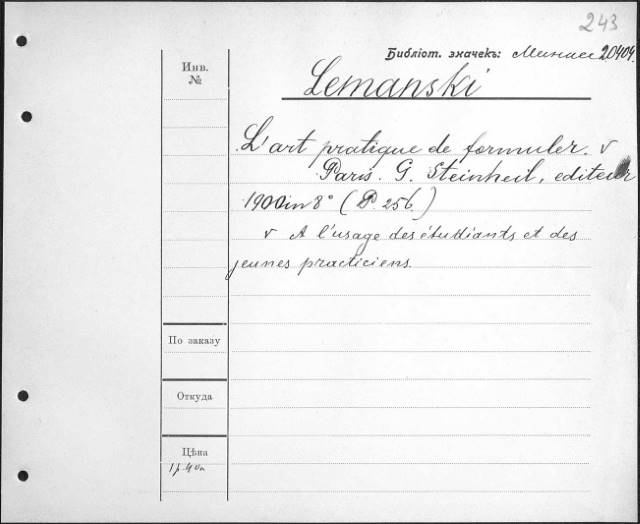 243
Библіот. значекъ: 20404.
Инв.
№
Lemanski
L'art pratique de formuler. v
Paris. G. Steinheil, editeur
1900 in 8° (P. 256.)
v A l'usage des étudiants et des
jeunes practiciens.
По заказу
Откуда
Цѣна